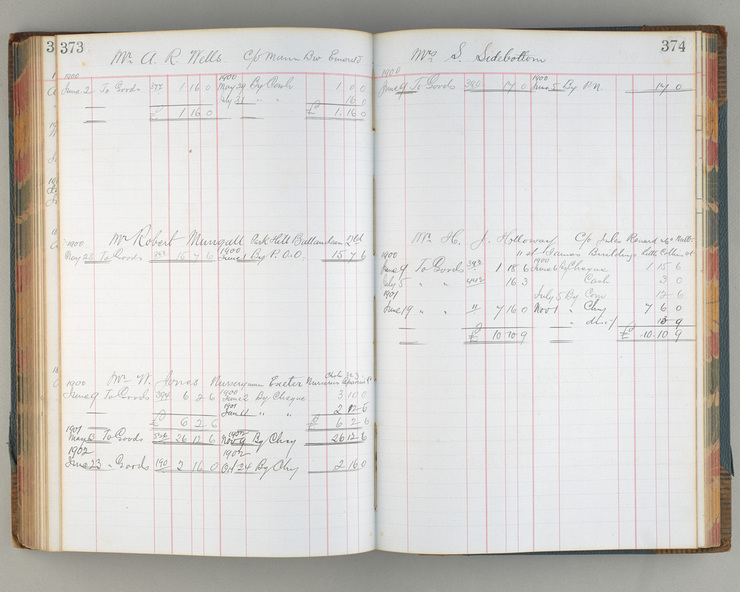 373
Mr A. R. Wells C/o Munn Bro
1900 1900
June 2 To Goods 1 16 0 May 29 By Cash 1 0 0
" " 16 0
£ 1 16 0 £ 1 16 0
Mr Robert Mungall Park Hill
1900 1900
May 26 To Goods 15 7 6 June 1 By P.O.O. 15 7 6
Mr W. Jones Nurseryman Exeter
1900 1900
June 9 To Goods 394 6 2 6 June 2 By Cheque 3 10 0
1901
Jan 11 " " 2 12 6
£ 6 2 6 £ 6 2 6
1901 1902
May 6 To Goods 26 12 6 Nov 9 By Chq 26 12 6
1902 1902
June 23 " Goods 190 2 16 0 Oct 24 By Chq 2 16 0
374
Mrs S. Sidebottom
1900 1900
June 9 To Goods 17 0 June 5 By PN 17 0
Mr H. J. Holloway C/o Jules Renard
11 St James Buildings Little Collins St
1900 1900
June 9 To Goods 393 1 18 6 June 6 By Cheque 1 15 6
July 5 " " 442 16 3 Cash 3 0
1901 July 5 By 12 6
June 19 " " 11 7 16 0 Nov 1 " Chq 7 6 0
" 13 9
£ 10 10 9 £ 10 10 9